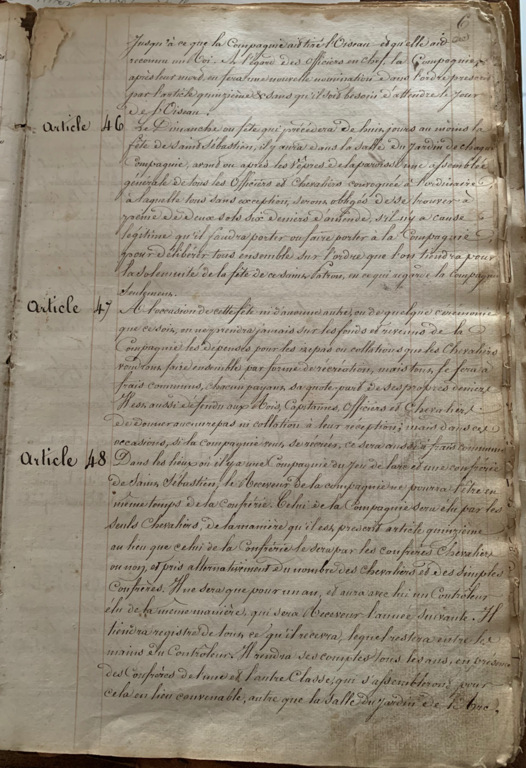 6
Jusqu'à ce que la Compagnie ait tiré l'Oiseau et qu'elle ait
reconnu un Roi. A l'égard des Officiers en chef, la Compagnie,
après leur mort, en fera une nouvelle nomination dans l'ordre prescrit
par l'article quinzième & sans qu'il soit besoin d'attendre le Jour
de l'Oiseau.
Article 46 Le Dimanche ou fête qui précèdera de huit jours au moins la
fête de saint Sébastien, il y aura dans la salle du Jardin de chaque
Compagnie, avant ou après les Vêpres de la paroisse une assemblée
générale de tous les Officiers et Chevaliers convoquée à l'ordinaire
à laquelle tous sans exception, seront obligés de se trouver à
peine de deux sols six deniers d'amende, s'il n'y a cause
legitime qu'il faudra porter ou faire porter à la Compagnie
pour délibérer tous ensemble sur l'ordre que l'on tiendra pour
la solemnité de la fête de ce saint Patron, en ce qui regarde la Compagnie
seulement.
Article 47 A l'occasion de cette fête ni d'aucune autre, ou de quelque cérémonie
que ce soit, on ne prendra jamais sur les fonds et revenus de la
Compagnie les dépenses pour les repas ou collations que les Chevaliers
voudront faire ensemble par forme de récréation, mais tout se fera à
frais communs, chacun payant sa quote-part de ses propres deniers
Il est aussi défendu aux Rois, Capitaines, Officiers et Chevaliers
de donner aucun repas ni collation à leur reception; mais dans ces
occasions, si la compagnie veut se récréer, ce sera aussi à frais communs
Article 48 Dans les lieux où il y a une Compagnie du jeu de l'arc et une confrérie
de Saint Sébastien, le Receveur de la compagnie ne pourra l'être en
même temps de la confrérie. Celui de la Compagnie sera élu par les
seuls Chevaliers, de la manière qu'il est prescrit article quinzième
ou lieu que celui de la Confrérie le sera par les confrères Chevaliers
ou non, et pris alternativement du nombre des Chevaliers et des simples
Confrères. Il ne sera que pour un an, et aura avec lui un Contrôleur
élu de la même manière, qui sera Receveur l'année suivante. Il
tiendra registre de tout ce qu'il recevra, lequel restera entre les
mains du Contrôleur. Il rendra ses comptes tous les ans, en présence
des Confrères de l'une et l'autre Classe, qui s'assembleront pour
cela en lieu convenable, autre que la salle du Jardin de l'Arc.